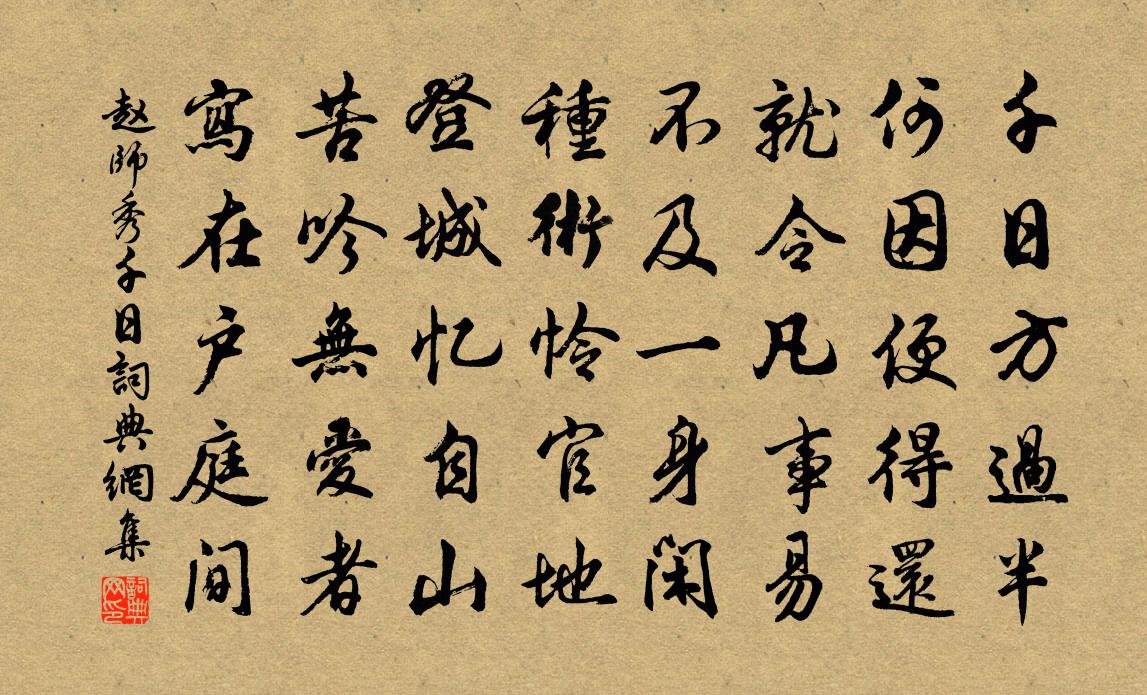 千日方過半
何因便得還
就令凡事易
不及一身閑
種術怜官地
登城忆自山
苦吟無愛者
寫在户庭间
赵師秀千日詞典網集
詞典网印